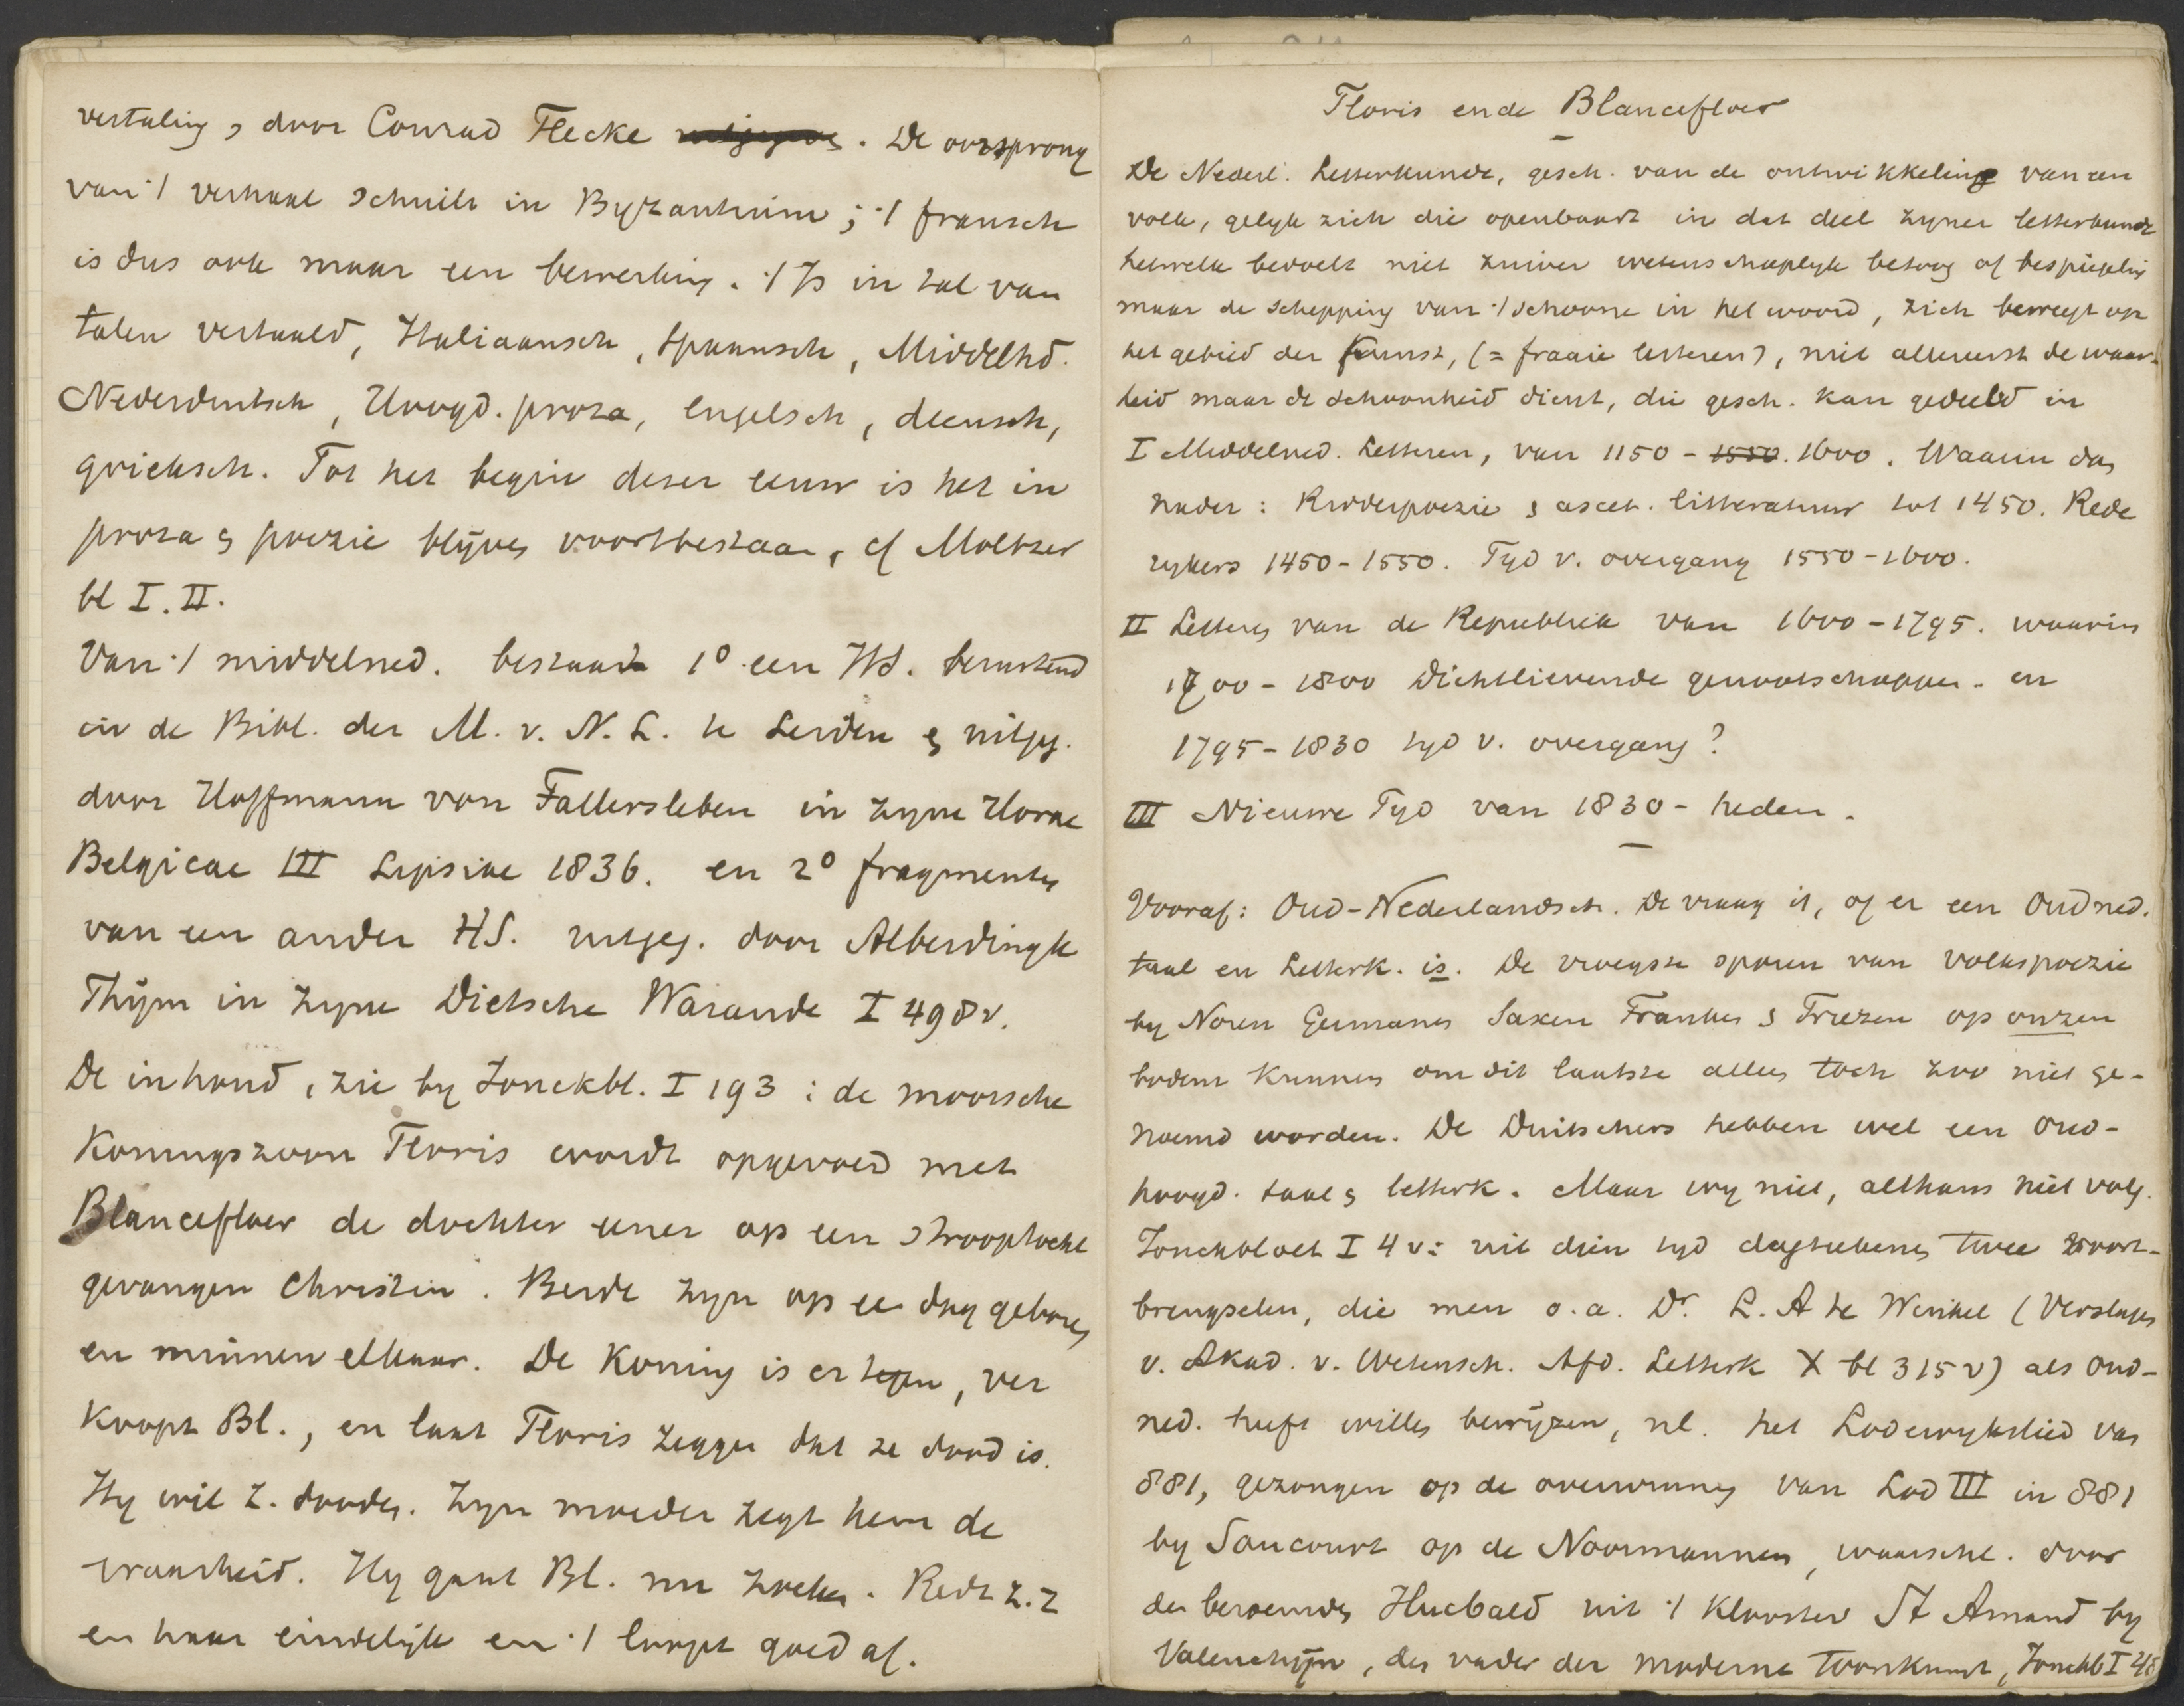 vertaling, door Conrad Flecke. De oorsprong
van 't verhaal schuilt in Byzantium; 't fransch
is dus ook maar een bewerking. 't Is in tal van
talen vertaald, Italiaansch, Spaansch, Middelhd.
Nederduitsch, Hoogd. proza, engelsch, deensch,
grieksch. Tot het begin dezer eeuw is het in
proza & poezie blijven voortbestaan, cf Moltzer
bl I. II.
Van 't middelned. bestaat 1º een Hs. berustend
in de Bibl. der M. v. N. L. te Leiden & uitgeg.
door Hoffmann von Fallersleben in zyne Horae
Belgicae III Lipsiae 1836. en 2º fragmenten
van een ander HS. uitgeg. door Alberdingk
Thijm in zyne Dietsche Warande I 498 v.
De inhoud, zie by Jonckbl. I 193: de moorsche
Koningszoon Floris wordt opgevoed met
Blancefloer de dochter eener op een strooptocht
gevangen Christin. Beide zyn op ee dag geboren
en minnen elkaar. De Koning is er tegen, ver
koopt Bl., en laat Floris zeggen dat ze dood is.
Hy wil z. dooden. Zyn moeder zegt hem de
waarheid. Hy gaat Bl. nu zoeken. Redt z. z
en haar eindelijk en 't loopt goed af.
Floris ende Blancefloer
De Nederl. Letterkunde, gesch. van de ontwikkeling van een
volk, gelyk zich die openbaart in dat deel zyner letterkunde
hetwelk bedoelt niet zuiver wetenschaplyk betoog of bespiegeling
maar de schepping van 't schoone in het woord, zich beweegt op
het gebied der Kunst, (= fraaie letteren), niet allereerst de waar-
heid maar de schoonheid dient, die gesch. kan gedeeld in
I Middelned. Letteren, van 1150 - 1550. 1600. Waarin dan
nader: Ridderpoezie & ascet. litteratuur tot 1450. Rede
rykers 1450-1550. Tyd v. overgang 1550-1600.
II Letteren van de Republiek van 1600-1795. waarin
1700 - 1800 Dichtlievende genootschappen. en
1795-1830 tyd v. overgang?
III Nieuwe Tyd van 1830 - heden.
Vooraf: Oud-Nederlandsch. De vraag is, of er een Oudned.
taal en Letterk. is. De vroegste sporen van volkspoezie
by Noren Germanen Saxen Franken & Friezen op onzen
bodem kunnen om dit laatste alleen toch zoo niet ge-
noemd worden. De Duitschers hebben wel een oud-
hoogd. taal & letterk. Maar wy niet, althans niet volg.
Jonckbloet I 4 v: uit dien tyd dagteekenen twee voort-
brengselen, die men o.a. Dr. L. A te Winkel (Verslagen
v. Akad. v. Wetensch. Afd. Letterk X bl 315 v) als oud-
ned. heeft willen bewijzen, nl. het Lodewykslied van
881, gezongen op de overwinning van Lod III in 881
by Saucourt op de Noormannen, waarschl. door
den beroemden Hucbald uit 't Klooster St Amand by
Valenchijn, den vader der moderne toonkunst, Jonckb I 48